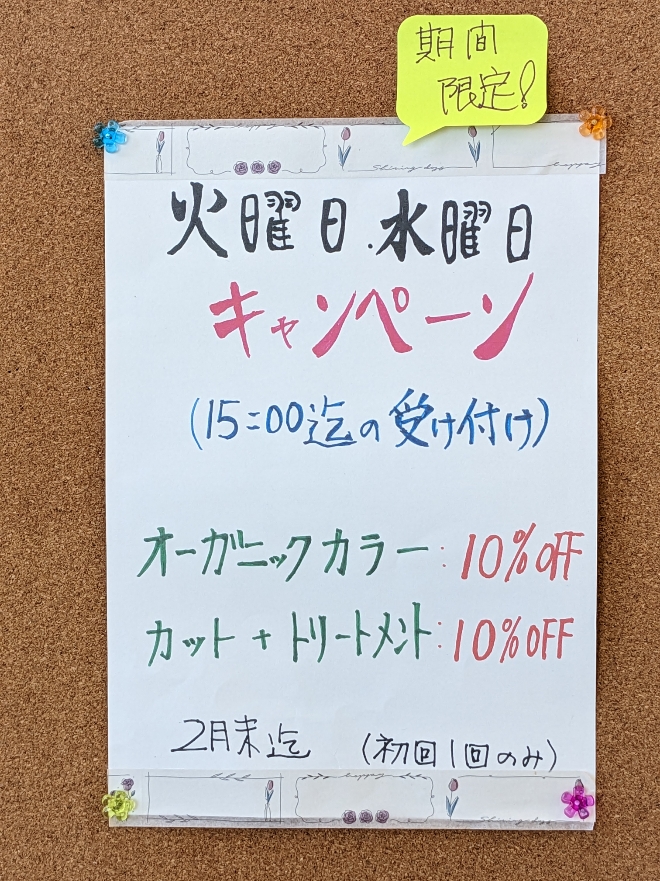 期間
限定!
火曜日.水曜日
キャンペーン
(15:00迄の受け付け)
オーガニックカラー:10%OFF
カット+トリートメント:10%OFF
2月末迄 (初回1回のみ)